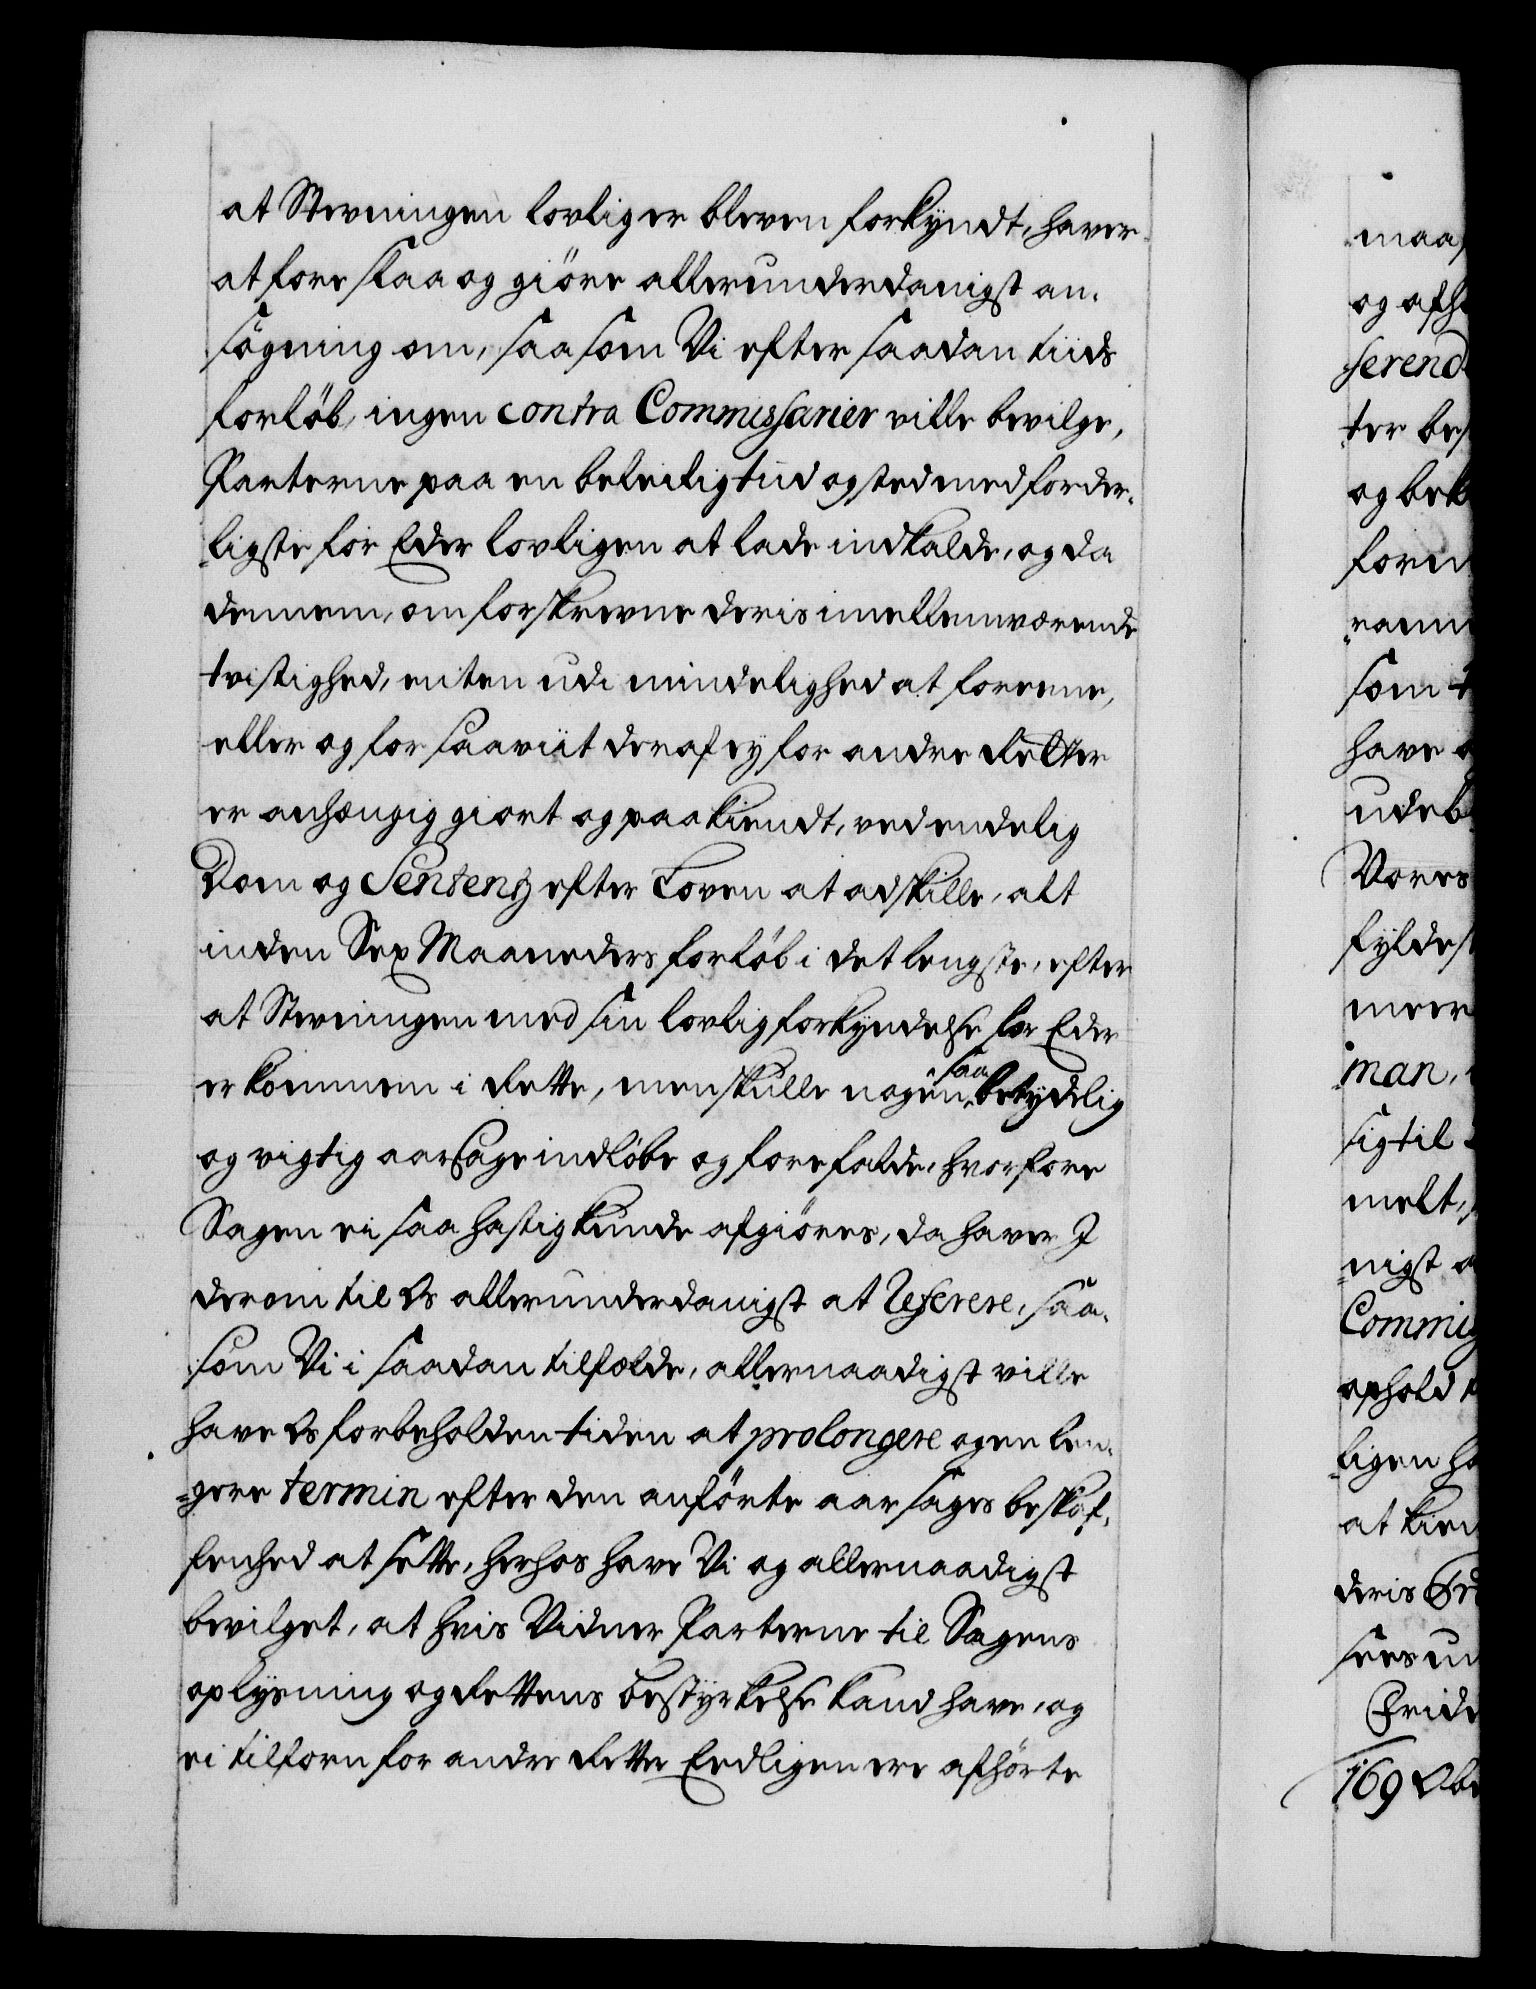 at Stevningen lovlig er bleven forkyndt, haver
at foreslaa og giöre allerunderdanigst an-
søgning om, saa som Vi efter saadan tiids
forløb, ingen contra Commissarier ville bevilge,
Parterne paa en beleilig tiid og sted med forder-
ligste for Eder lovligen at lade indkalde, og da
dennem, om forskrevne deris imellemværende
tvistighed, enten udi mindelighed at foreene,
eller og for saaviit deraf ey for andre Retter
er anhængig giort og paakiendt, ved endelig
Dom og Sententz efter Loven at adskille, alt
inden Sex Maaneders forløb i det lengste, efter
at Stevningen med sin lovlig forkyndelse for Eder
er kommen i Rette, men skulle nogen saa betydelig
og vigtig aarsage indløbe og forefalde, hvorfore
Sagen ei saa hastig kunde afgiöres, da haver I
derom til Os allerunderdanigst at Referere, saa-
som Vi i saadan tilfælde, allernaadigst ville
have Os forbeholden tiden at prolongere og en len-
gere termin efter den anförte aarsages beskaf-
fenhed at sette, herhos have Vi og allernaadigst
bevilget, at hvis Vidner Parterne til Sagens
oplysning og Rettens bestyrkelse kand have, og
ei tilforn for andre Rette Eedligen ere afhörte
maa
og afh
ferend
ter bes
og bek
foren
som t
have
udeb
Vores
fyldes
meer
man,
sig til
melt,
nigst a
Commis
ophold
ligen ha
at kien
deris
sees un
Fride
169